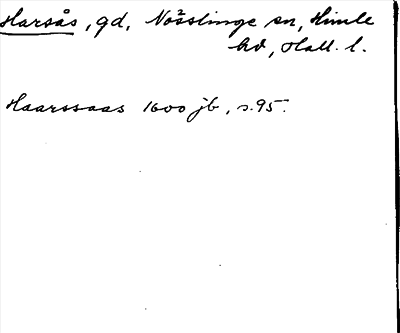 Harsås, gd, Nösslinge sn, Himle
hd, Hall. l.
Haarssaas 1600 jb, s. 95.